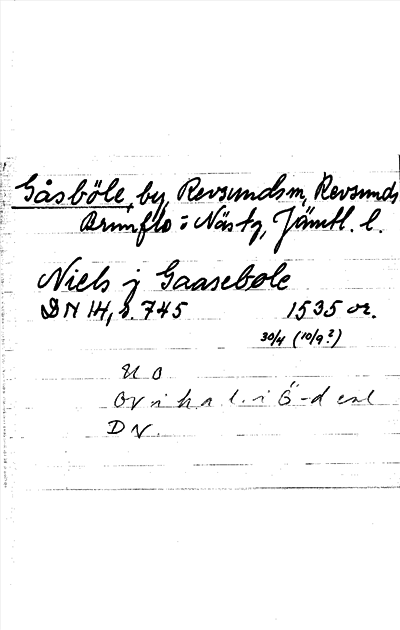 Gåsböle, by, Revsunds sn, Revsunds
Brunflo o Näs tg, Jämtl. l.
Niels j Gaasebole
DN 14, s. 745 1535 or.
30/4 (10/9?)
U O
Or i h a l. i Ö-d
DN.